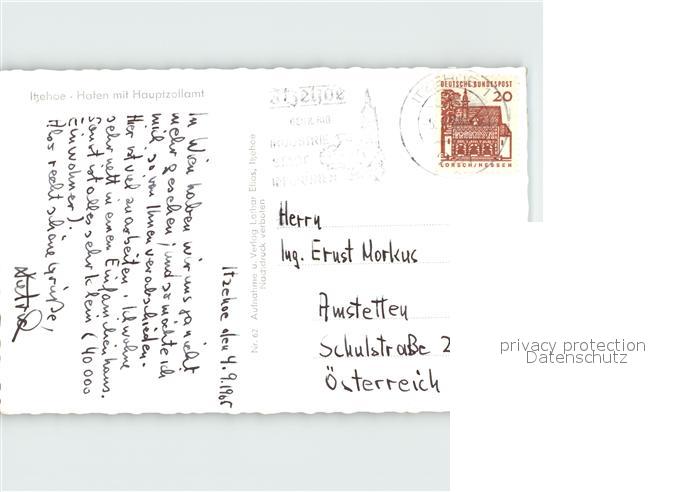 Itzehoe - Hafen mit Hauptzollamt
Itzehoe den 4.9.1965
In Wien haben wir uns ja nicht
mehr gesehen; und so möchte ich
mich so von Ihnen verabschieden.
Hier ist viel zu arbeiten. Ich wohne
sehr nett in einem Einfamilienhaus.
Sonst ist alles sehr klein (40 000
Einwohner).
Also recht schöne Grüße,
Nr. 62 Aufnahme u. Verlag Lothar Elias, Itzehoe
Nachdruck verboten
Itzehoe
INDUSTRIE
STADT
DEUTSCHE BUNDESPOST
20
LORSCH/HESSEN
Herrn
Ing. Ernst Morkus
Amstetten
Schulstraße 2
Österreich
privacy protection
Datenschutz